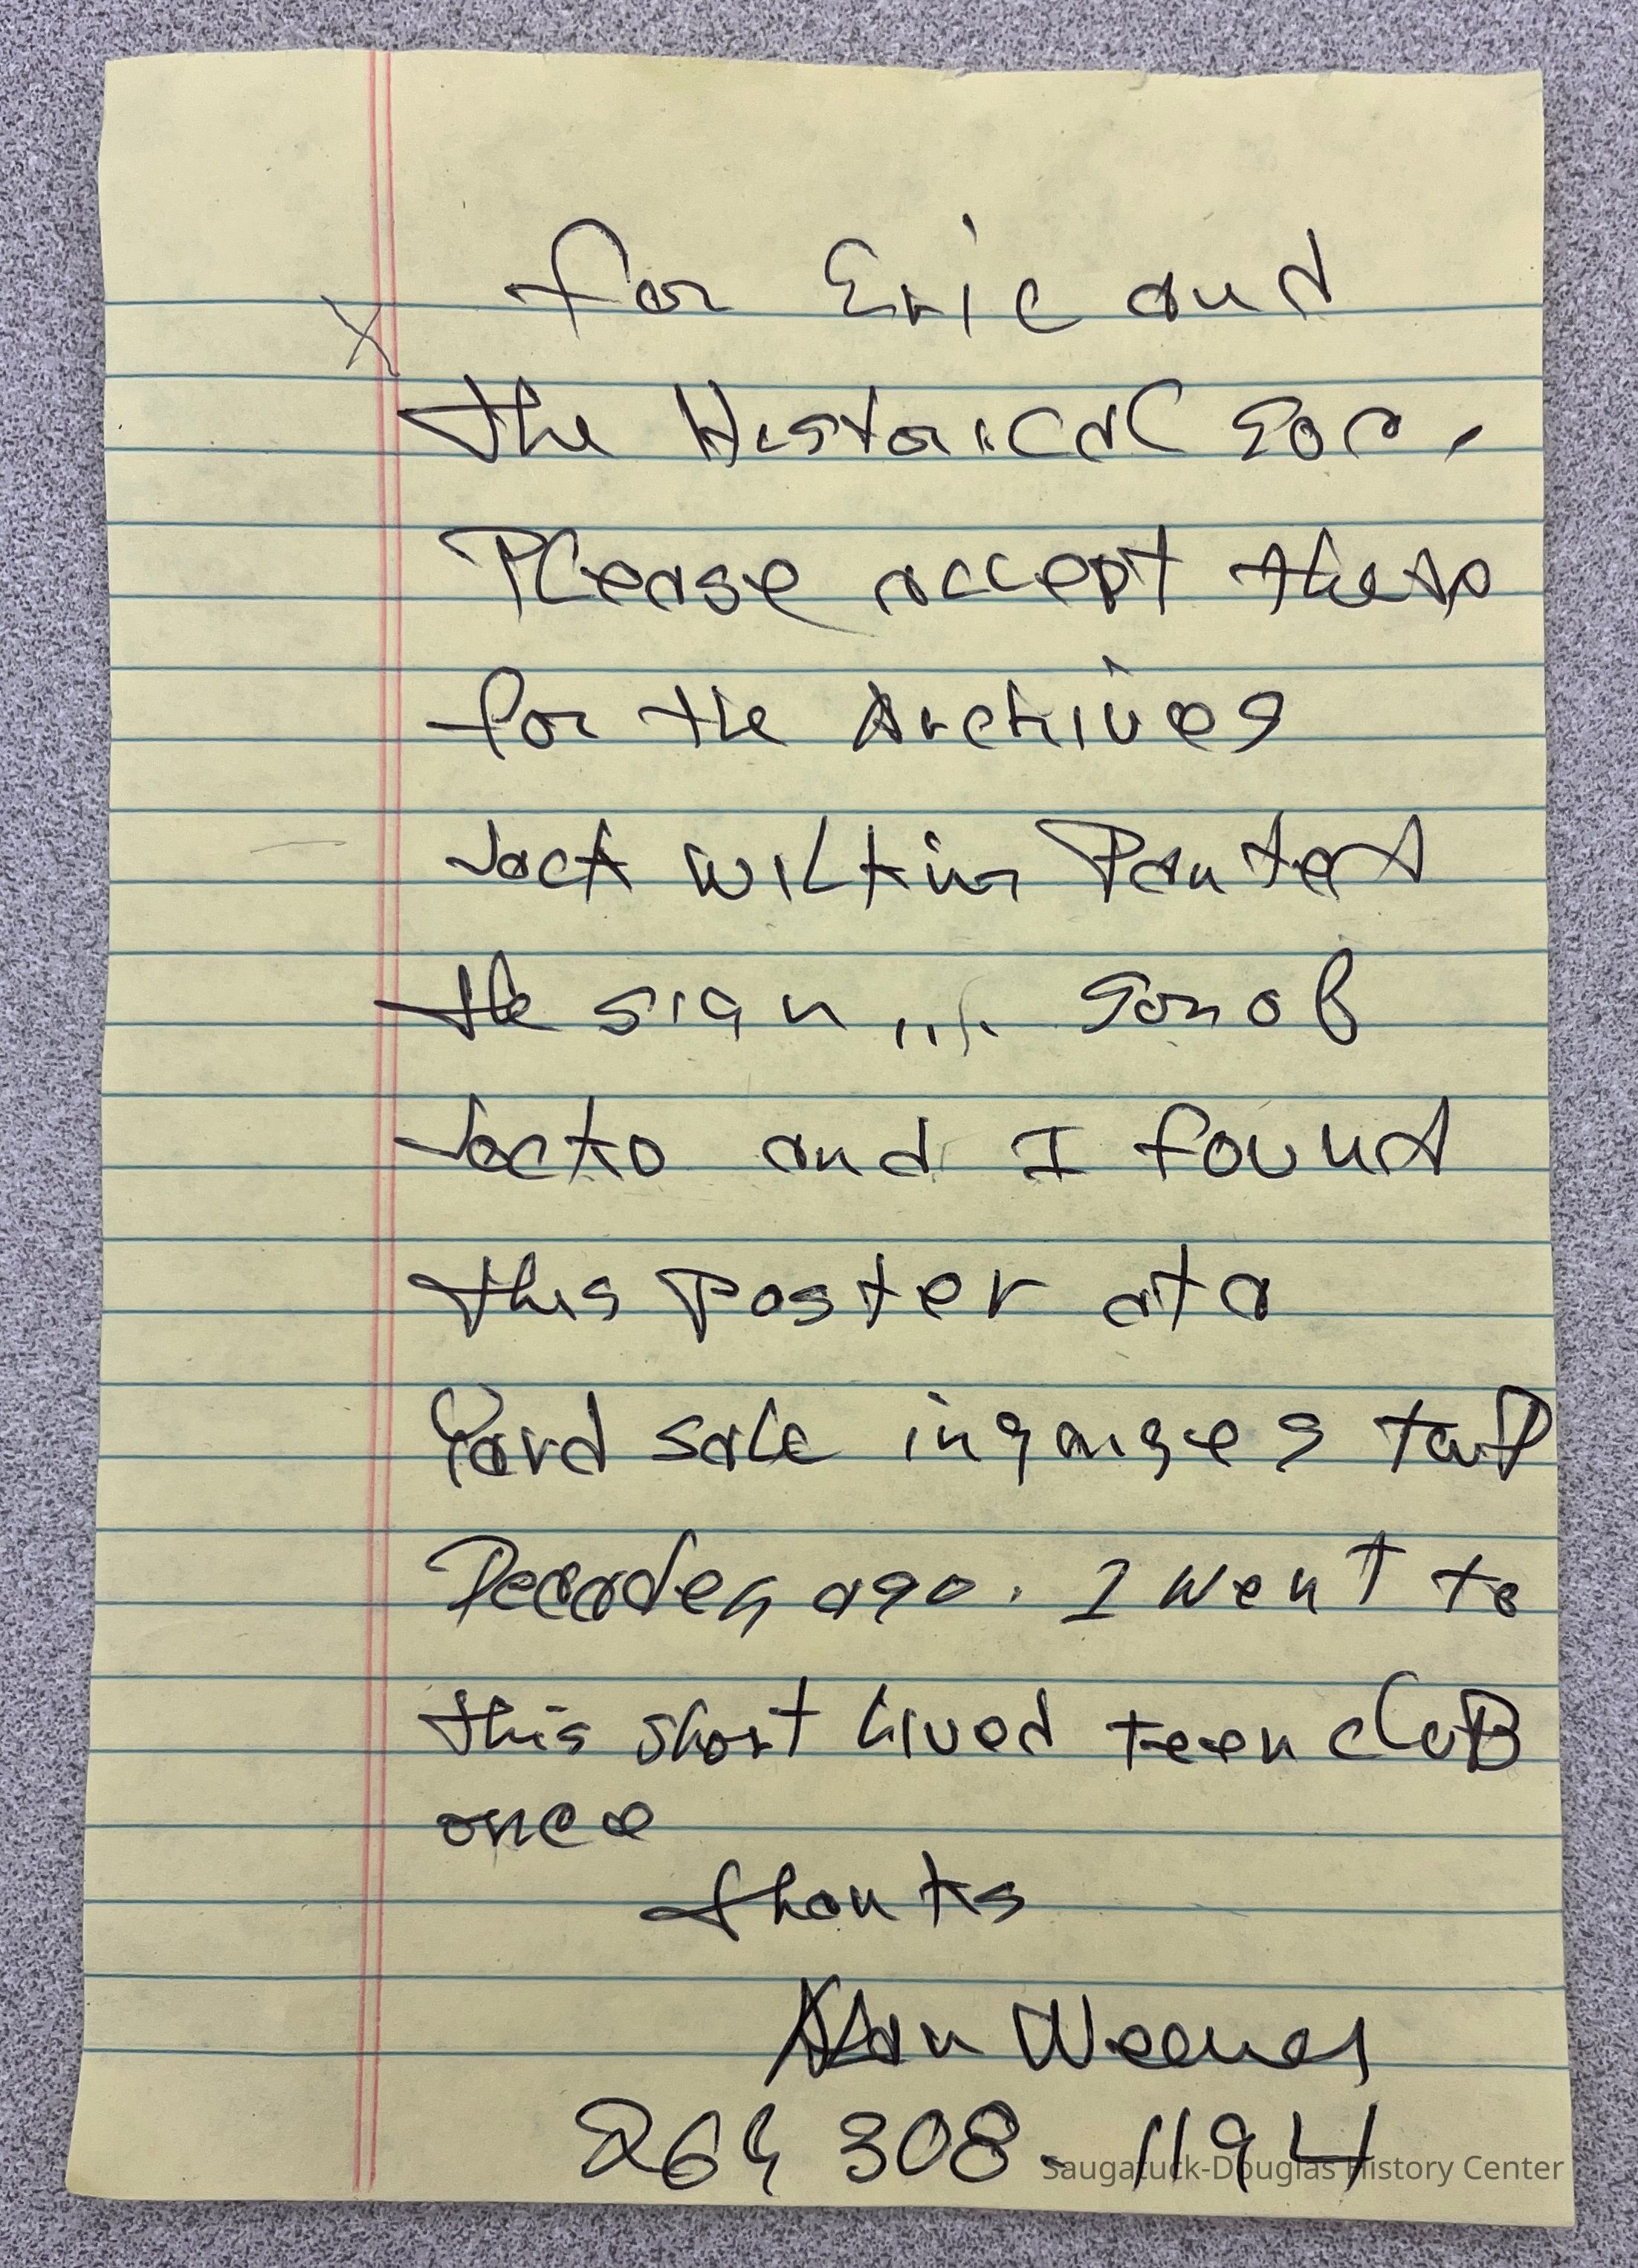 For Eric and
the Historical Soc.
Please accept these
for the Archives
Jack Wilkin Painted
the sign .... Son of
Jacko and I found
this Poster at a
Yard sale in ganges
Decades ago. I went to
this short lived teen cluB
once
thanks
308-1194
Saugatuck-Douglas History Center